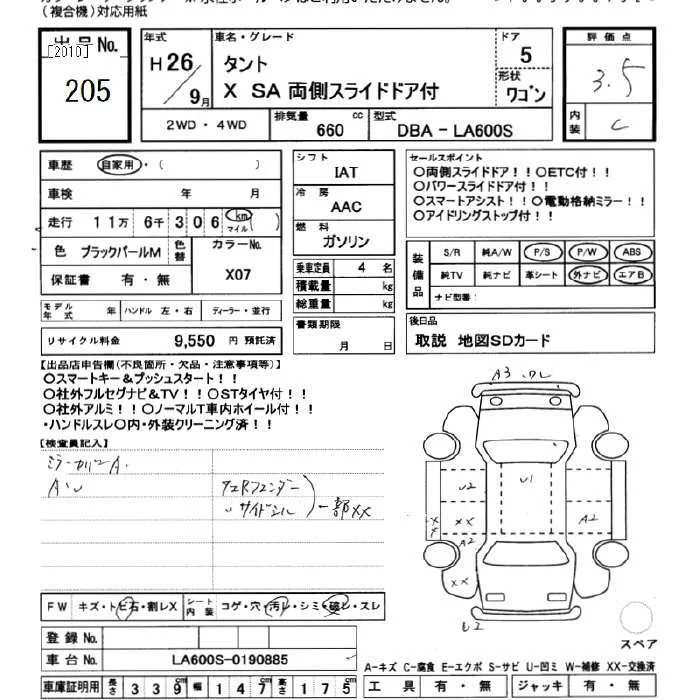 (複合機)対応用紙
出品No.
[2010]
205
年式
H26/9月
車名・グレード
タント
X SA 両側スライドドア付
ドア
5
形状
ワゴン
評価点
3.5
内装
C
2WD・4WD
排気量
660 cc
型式
DBA-LA600S
車歴 自家用・( )
車検 年 月
走行 11万 6千 306 km マイル
色 ブラックパールM 色替 カラーNo. X07
保証書 有・無
モデル年式 年 ハンドル 左・右 ディーラー・並行
リサイクル料金 9,550 円 預託済
シフト
IAT
冷房
AAC
燃料
ガソリン
乗車定員 4 名
積載量 kg
総重量 kg
書類期限
月 日
セールスポイント
○両側スライドドア!!○ETC付!!
○パワースライドドア付!!
○スマートアシスト!!○電動格納ミラー!!
○アイドリングストップ付!!
装備品
S/R 純A/W P/S P/W ABS
純TV 純ナビ 革シート 外ナビ エアB
ナビ型番:
後日品
取説 地図SDカード
【出品店申告欄(不良箇所・欠品・注意事項等)】
○スマートキー&プッシュスタート!!
○社外フルセグナビ&TV!!○STタイヤ付!!
○社外アルミ!!○ノーマルT車内ホイール付!!
・ハンドルスレ○内・外装クリーニング済!!
【検査員記入】
ミラーカバーA.
A・U
フェンダー
サイドシル
一部XX
A3
U2
U1
XX
A2
A2
XX
E2
FW キズ・トビ石・割レX シート内装 コゲ・穴・汚レ・シミ・破レ・スレ
登録No.
車台No. LA600S-0190885
車庫証明用 長さ 339 cm 幅 147 cm 高さ 175 cm
スペア
A-キズ C-腐食 E-エクボ S-サビ U-凹ミ W-補修 XX-交換済
工具 有・無 ジャッキ 有・無